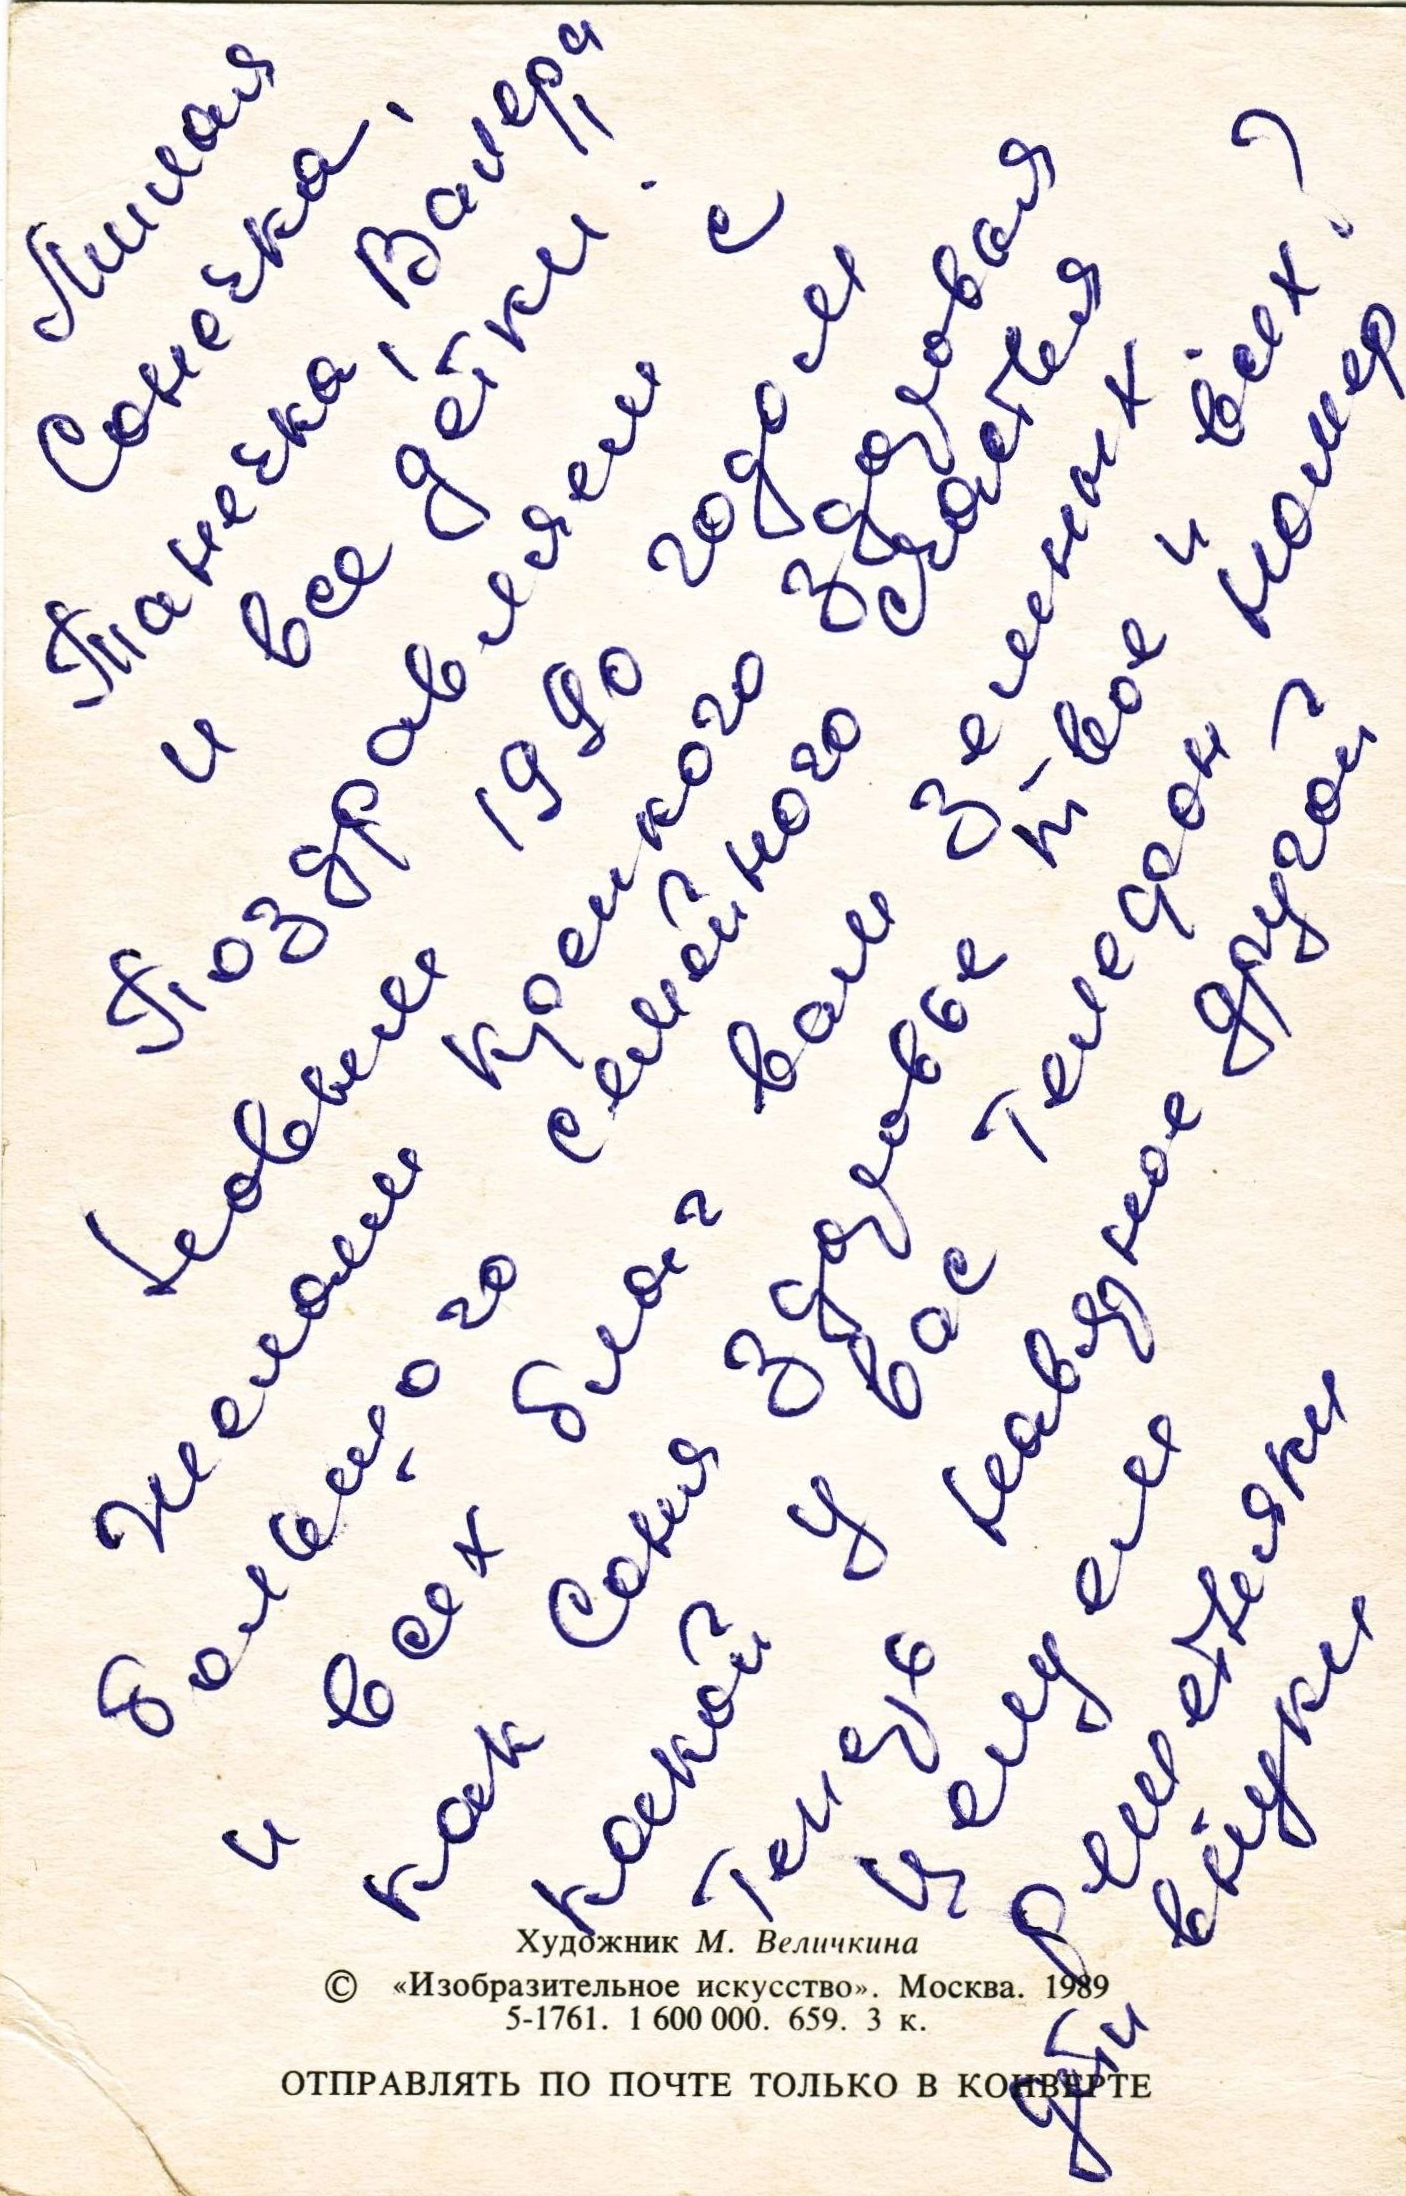 Милая
Сонечка,
Танечка, Валера
и все детки.
Поздравляем с
Новым 1990 годом
Желаем крепкого здоровая
большого семейного счастья
и всех благ вам земных
как Соня здоровье твое и всех?
какой у вас телефон номер
теперь наверное другой
целуем
Решетняки
дети внуки
Художник М. Величкина
© «Изобразительное искусство». Москва. 1989
5-1761. 1 600 000. 659. 3 к.
ОТПРАВЛЯТЬ ПО ПОЧТЕ ТОЛЬКО В КОНВЕРТЕ